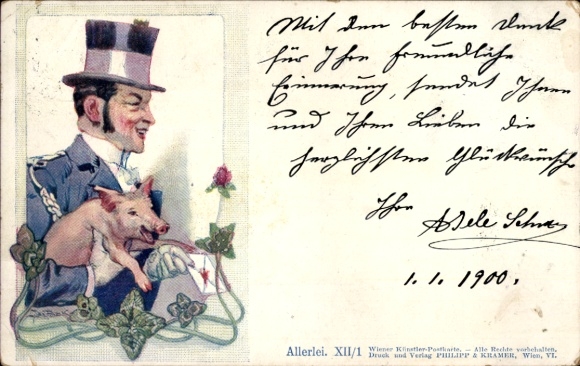 Mit den besten Dank
für Ihre freundliche
Erinnerung, sendet Ihnen
und Ihren Lieben die
herzlichsten Glückwünsche
Ihre
Adele
1.1.1900.
Allerlei. XII/1
Wiener Künstler-Postkarte. – Alle Rechte vorbehalten.
Druck und Verlag PHILIPP & KRAMER, Wien, VI.